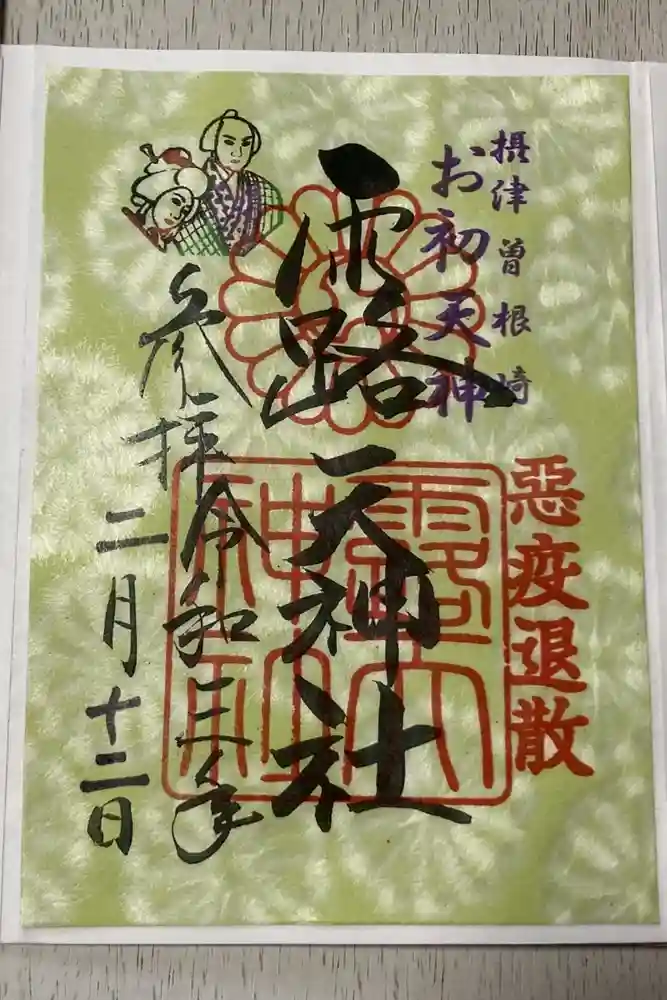 摂津曽根崎
お初天神
悪疫退散
露天神社
露天神社
参拝
令和三年
二月十二日